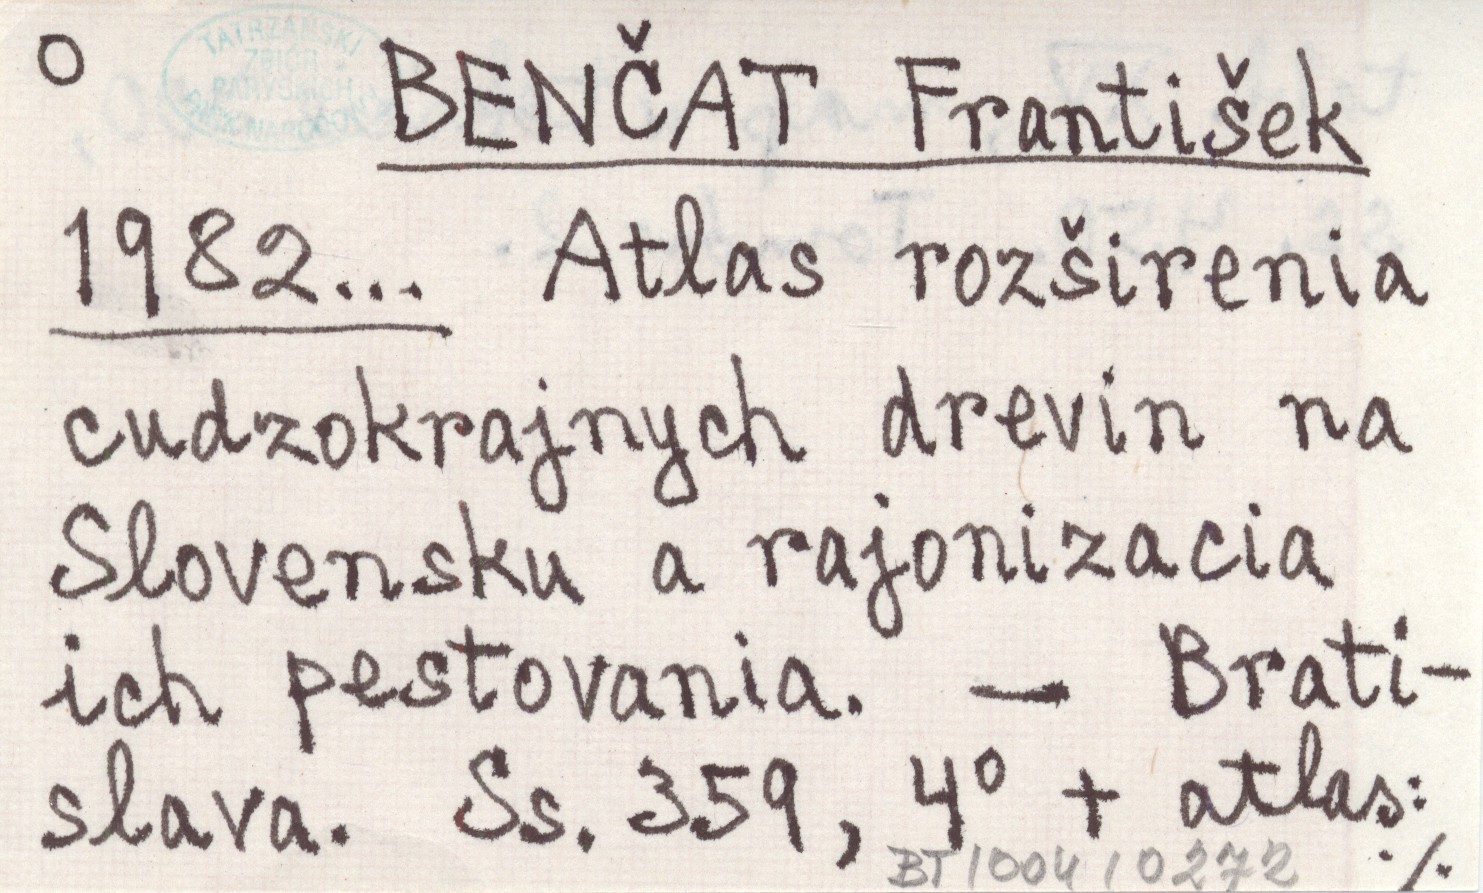 O
TATRZAŃSKI
ZBIÓR
BENČAT František
1982... Atlas rozširenia
cudzokrajnych drevin na
Slovensku a rajonizacia
ich pestovania. — Brati-
slava. Ss. 359, 4° + atlas:
BT 1004 / 0272 ./.